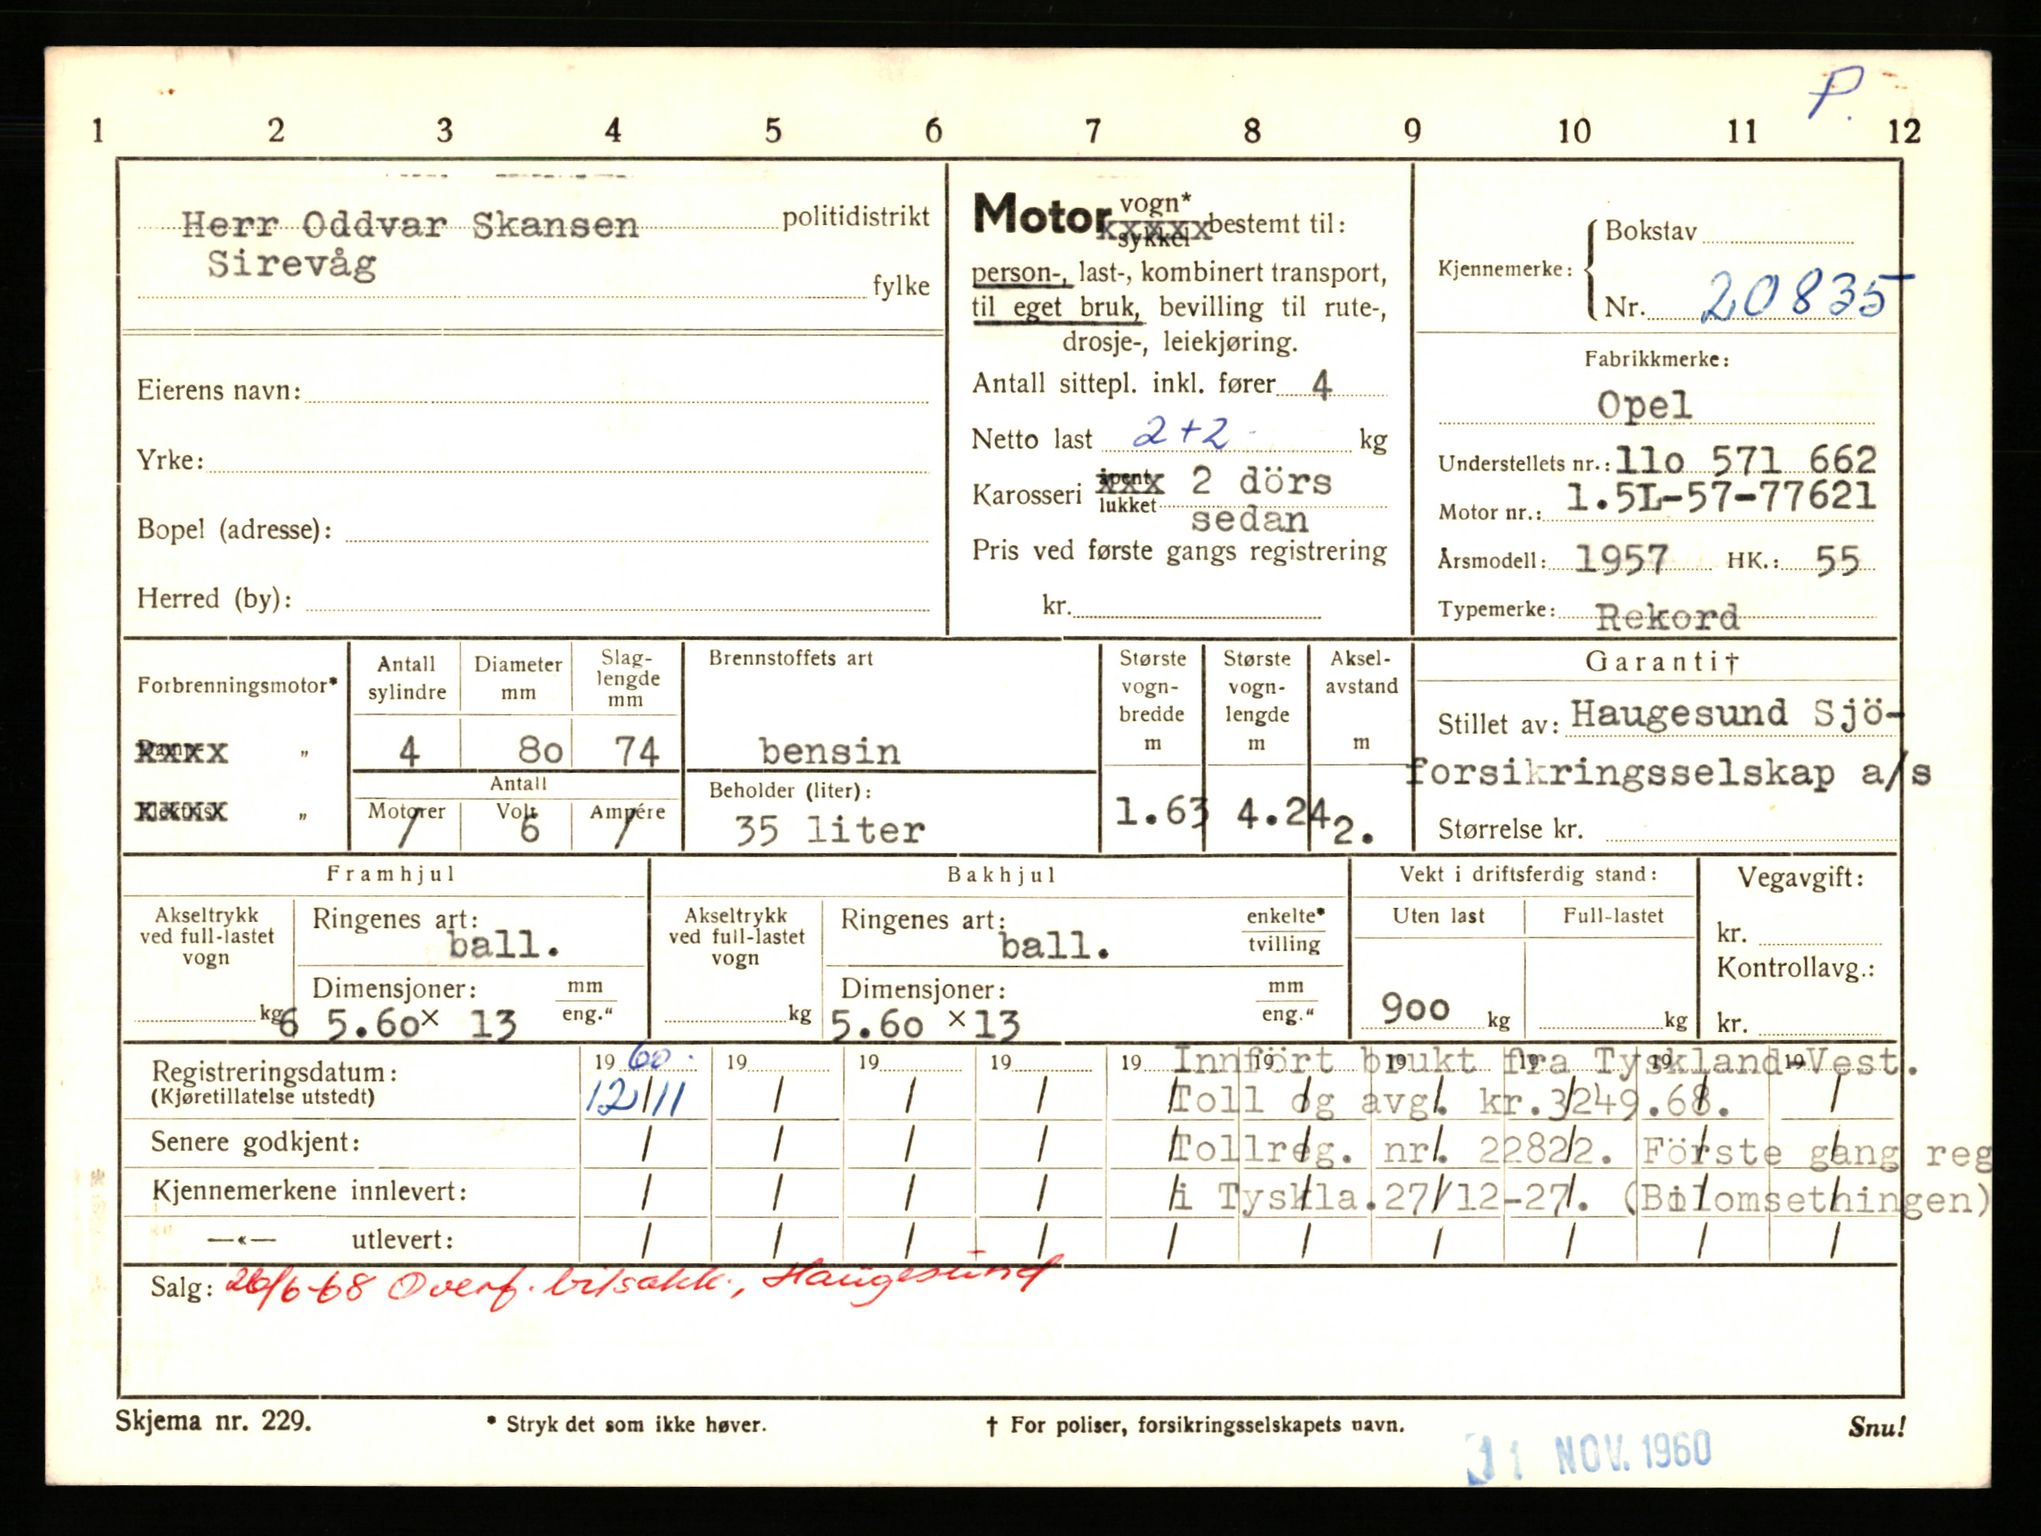 P.
1 2 3 4 5 6 7 8 9 10 11 12
Herr Oddvar Skansen politidistrikt
Sirevåg
fylke
Eierens navn:
Yrke:
Bopel (adresse):
Herred (by):
Motor vogn* sykkel bestemt til:
person-, last-, kombinert transport,
til eget bruk, bevilling til rute-,
drosje-, leiekjøring.
Antall sittepl. inkl. fører 4
Netto last 2+2 kg
Karosseri åpent lukket 2 dörs
sedan
Pris ved første gangs registrering
kr.
Kjennemerke: Bokstav
Nr. 20835
Fabrikkmerke:
Opel
Understellets nr.: 11o 571 662
Motor nr.: 1.5L-57-77621
Årsmodell: 1957 HK.: 55
Typemerke: Rekord
Forbrenningsmotor*
Damp- xxxx „
Elektrisk xxxx „
Antall sylindre
4
Diameter mm
8o
Slag-
lengde
mm
74
Antall
Motorer / Volt 6 Ampére /
Brennstoffets art
bensin
Beholder (liter):
35 liter
Største
vogn-
bredde
m
1.63
Største
vogn-
lengde
m
4.24
Aksel-
avstand
m
2.
Garanti†
Stillet av: Haugesund Sjö-
forsikringsselskap a/s
Størrelse kr.
Framhjul
Akseltrykk
ved full-lastet
vogn
kg
Ringenes art:
ball.
Dimensjoner: mm
6 5.6o x 13 eng."
Bakhjul
Akseltrykk
ved full-lastet
vogn
kg
Ringenes art: enkelte*
ball. tvilling
Dimensjoner: mm
5.6o x 13 eng."
Vekt i driftsferdig stand:
Uten last Full-lastet
9oo kg kg
Vegavgift:
kr.
Kontrollavg.:
kr.
Registreringsdatum: 19 60. 19 19 19 19 19 19 19 19 19
(Kjøretillatelse utstedt) 12/11 / / / / / / / / /
Innfört brukt fra Tyskland-Vest.
Toll og avg. kr.3249.68.
Senere godkjent: / / / / / / / / / /
Tollreg. nr. 22822. Förste gang reg
Kjennemerkene innlevert: / / / / / / / / / /
i Tyskla.27/12-27. (Bilomsetningen)
—«— utlevert: / / / / / / / / / /
Salg: 26/6-68 Overf. bilsakk., Haugesund
Skjema nr. 229. * Stryk det som ikke høver. † For poliser, forsikringsselskapets navn. Snu!
11 NOV. 1960